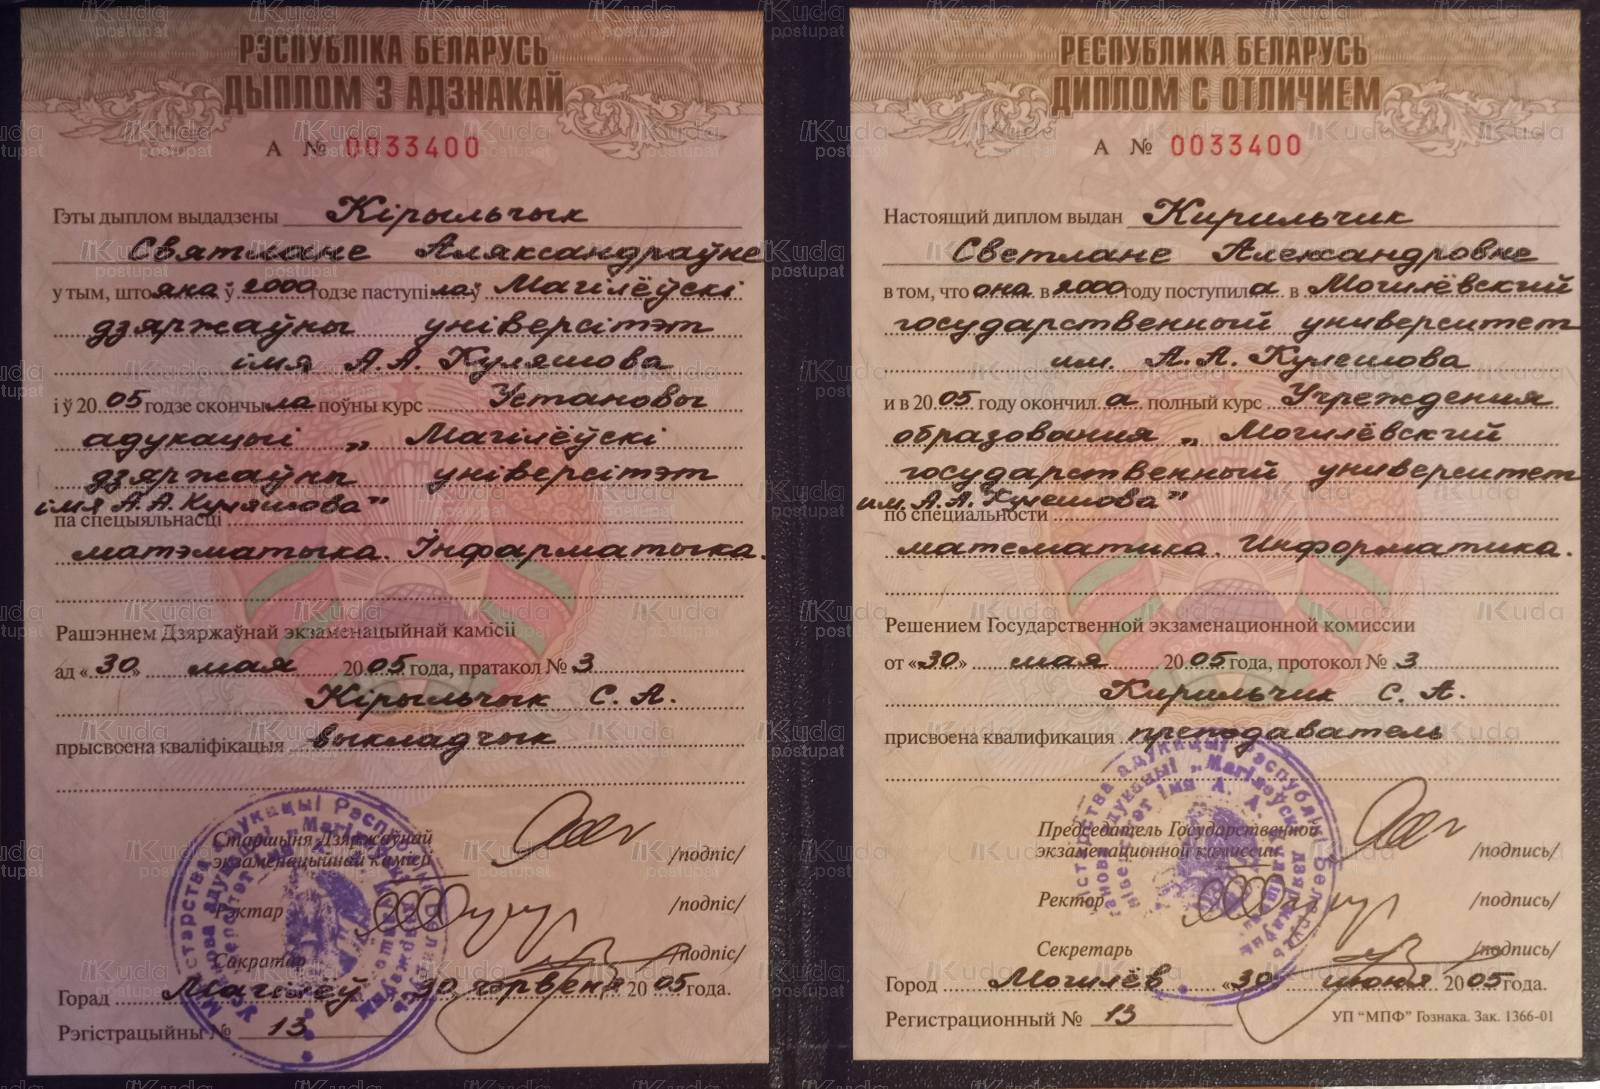 РЭСПУБЛІКА БЕЛАРУСЬ
ДЫПЛОМ З АДЗНАКАЙ
А № 0033400
Гэты дыплом выдадзены Кірыльчык
Святлане Аляксандраўне
у тым, што яна ў 2000 годзе паступіла ў Магілёўскі
дзяржаўны універсітэт
імя А.А. Куляшова
і ў 2005 годзе скончыла поўны курс Установы
адукацыі „Магілёўскі
дзяржаўны універсітэт
імя А.А. Куляшова"
па спецыяльнасці
матэматыка. Інфарматыка.
Рашэннем Дзяржаўнай экзаменацыйнай камісіі
ад «30» мая 2005 года, пратакол № 3
Кірыльчык С. А.
прысвоена кваліфікацыя выкладчык
Старшыня Дзяржаўнай
экзаменацыйнай камісіі /подпіс/
Рэктар /подпіс/
Сакратар /подпіс/
Горад Магілёў «30 чэрвеня 2005 года.
Рэгістрацыйны № 13
РЕСПУБЛИКА БЕЛАРУСЬ
ДИПЛОМ С ОТЛИЧИЕМ
А № 0033400
Настоящий диплом выдан Кирильчик
Светлане Александровне
в том, что она в 2000 году поступила в Могилёвский
государственный университет
им. А.А. Кулешова
и в 2005 году окончила полный курс Учреждения
образования „Могилёвский
государственный университет
им. А.А. Кулешова"
по специальности
математика. Информатика.
Решением Государственной экзаменационной комиссии
от «30» мая 2005 года, протокол № 3
Кирильчик С. А.
присвоена квалификация преподаватель
Председатель Государственной
экзаменационной комиссии /подпись/
Ректор /подпись/
Секретарь /подпись/
Город Могилёв «30 июня 2005 года.
Регистрационный № 13
УП “МПФ” Гознака. Зак. 1366-01
Kuda
postupat